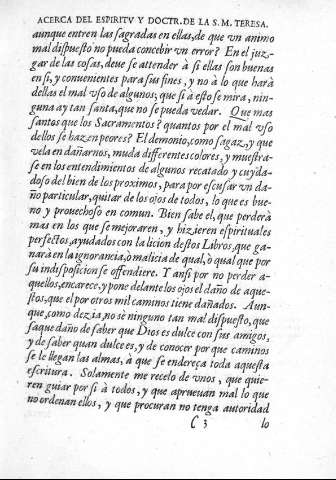 ACERCA DEL ESPIRITV Y DOCTR. DE LA S. M. TERESA.
aunque entren las sagradas en ellas, de que vn animo
mal dispuesto no pueda concebir vn error? En el juz-
gar de las cosas, deue se attender à si ellas son buenas
en si, y conuenientes para sus fines, y no à lo que harà
dellas el mal vso de algunos; que si à esto se mira, nin-
guna ay tan santa, que no se pueda vedar. Que mas
santos que los Sacramentos? quantos por el mal vso
dellos se hazen peores? El demonio, como sagaz, y que
vela en dañarnos, muda differentes colores, y muestra-
se en los entendimientos de algunos recatado y cuyda-
doso del bien de los proximos, para por escusar vn da-
ño particular, quitar de los ojos de todos, lo que es bue-
no y prouechoso en comun. Bien sabe el, que perderà
mas en los que se mejoraren, y hizieren espirituales
perfectos, ayudados con la licion destos Libros, que ga-
narà en la ignorancia, ò malicia de qual, ò qual que por
su indisposicion se offendiere. Y ansi por no perder a-
quellos, encarece, y pone delante los ojos el daño de aque-
stos, que el por otros mil caminos tiene dañados. Aun-
que, como dezia, no sè ninguno tan mal dispuesto, que
saque daño de saber que Dios es dulce con sus amigos,
y de saber quan dulce es, y de conocer por que caminos
se le llegan las almas, à que se endereça toda aquesta
escritura. Solamente me recelo de vnos, que quie-
ren guiar por si à todos, y que aprueuan mal lo que
no ordenan ellos, y que procuran no tenga autoridad
C 3 lo